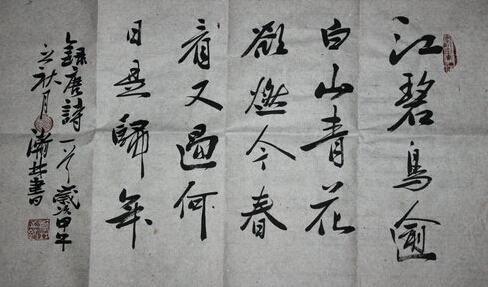 江碧鳥逾
白山青花
欲燃今春
看又過何
日是歸年
錄唐詩一首歲次甲午
秋月書